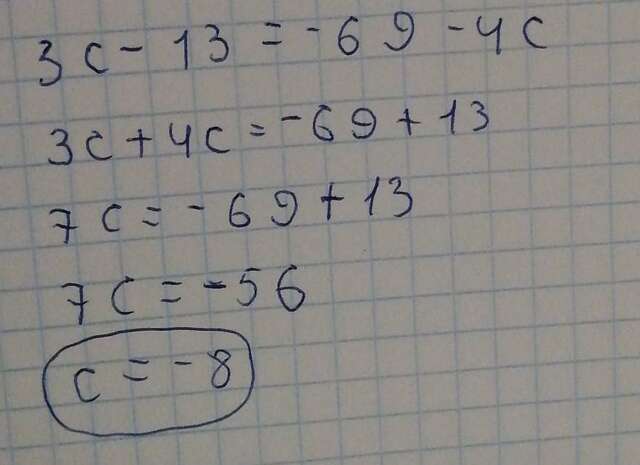 3c - 13 = -69 - 4c
3c + 4c = -69 + 13
7c = -69 + 13
7c = -56
c = -8